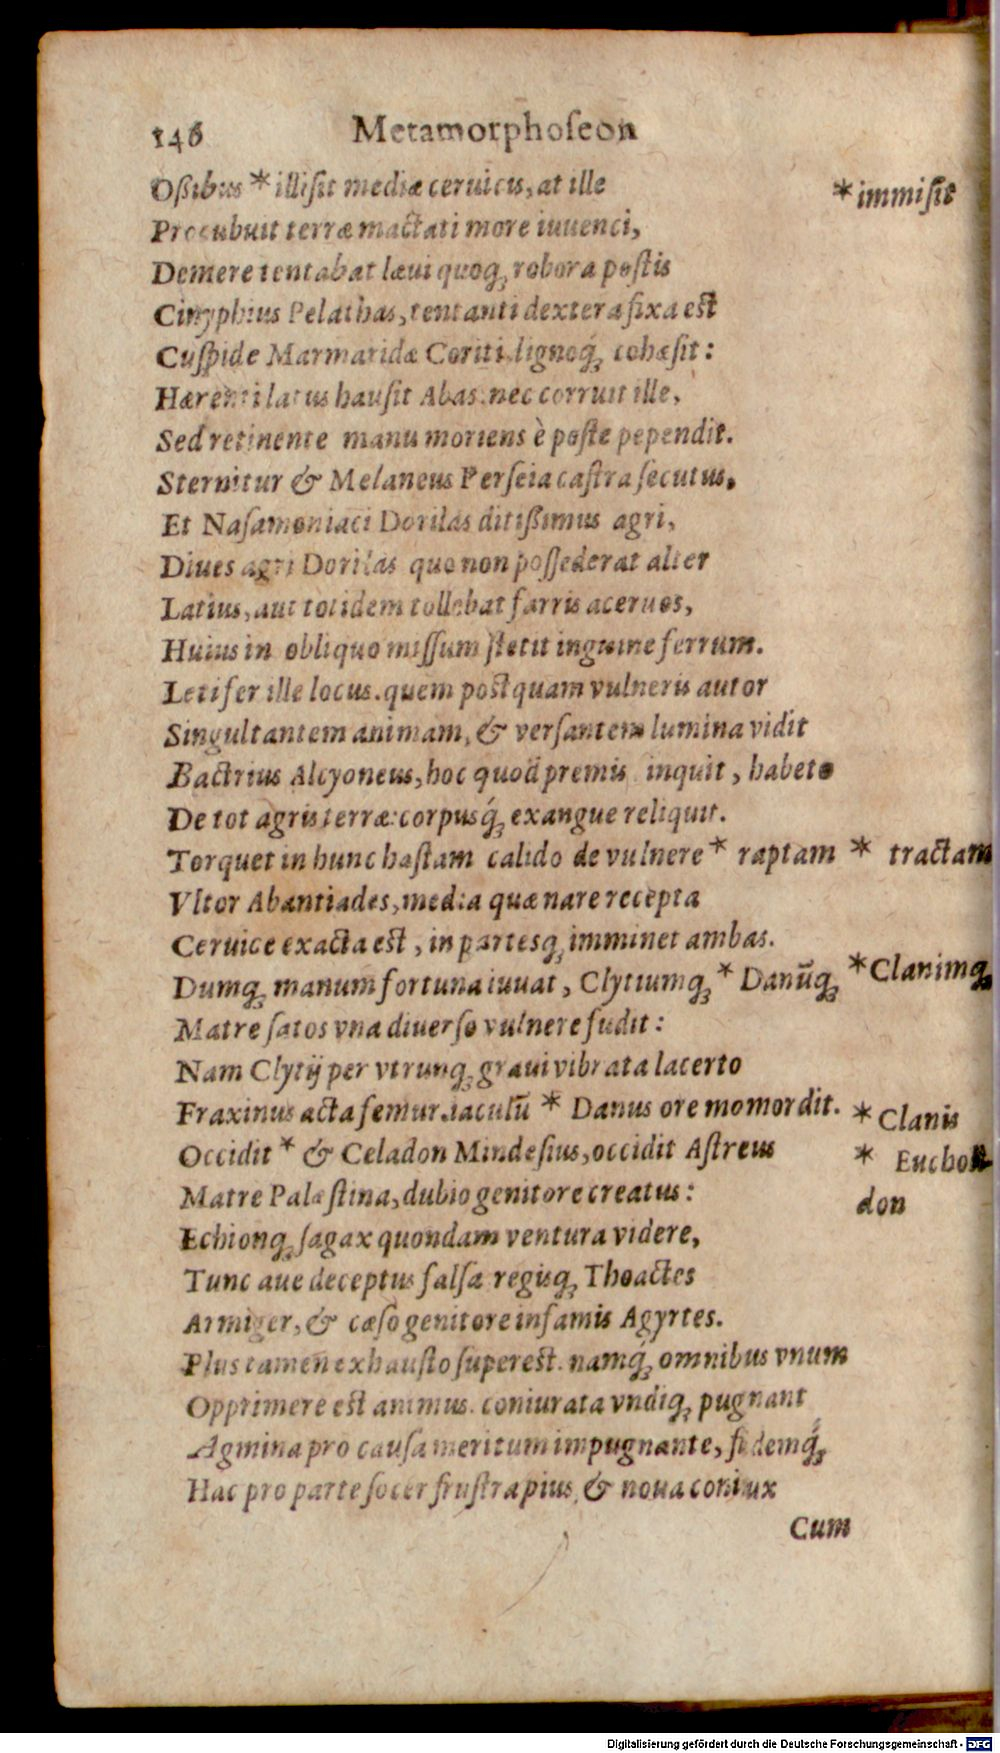 146 Metamorphoſeon
Oßibus * illiſit mediæ ceruicis, at ille * immiſit
Procubuit terræ mactati more iuuenci,
Demere tentabat læui quoq; robora poſtis
Cinyphius Pelathas, tentanti dextera fixa est
Cuſpide Marmaridæ Coriti. lignoq́; cohæſit:
Hærenti latus hauſit Abas. nec corruit ille,
Sed retinente manu moriens è poſte pependit.
Sternitur & Melaneus Perſeia caſtra ſecutus,
Et Naſamoniaci Dorilas ditißimus agri,
Diues agri Dorilas quo non poſſederat alter
Latius, aut totidem tollebat farris aceruos,
Huius in obliquo miſſum ſtetit inguine ferrum.
Letifer ille locus. quem postquam vulneris autor
Singultantem animam, & verſantem lumina vidit
Bactrius Alcyoneus, hoc quod premis inquit, habeto
De tot agris terræ: corpusq́; exangue reliquit.
Torquet in hunc haſtam calido de vulnere * raptam * tractam
Vltor Abantiades, media quæ nare recepta
Ceruice exacta est, in partesq; imminet ambas.
Dumq; manum fortuna iuuat, Clytiumq; * Danūq; * Clanimq;
Matre ſatos vna diuerſo vulnere fudit:
Nam Clytij per vtrunq; graui vibrata lacerto
Fraxinus acta femur. iaculū * Danus ore momordit. * Clanis
Occidit * & Celadon Mindeſius, occidit Aſtreus * Eucholi-
don
Matre Palæſtina, dubio genitore creatus:
Echionq; ſagax quondam ventura videre,
Tunc aue deceptus falſa regisq; Thoactes
Armiger, & cæſo genitore infamis Agyrtes.
Plus tamen exhauſto ſuperest. namq́; omnibus vnum
Opprimere est animus. coniurata vndiq; pugnant
Agmina pro cauſa meritum impugnante, fidemq́;
Hac pro parte ſocer fruſtra pius, & noua coniux
Cum
Digitalisierung gefördert durch die Deutsche Forschungsgemeinschaft - DFG